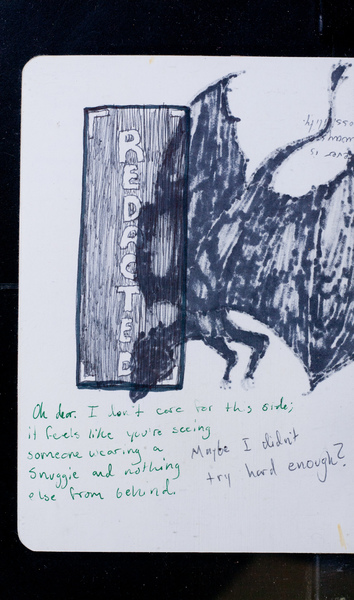 REDACTED
Oh dear. I don't care for this side;
it feels like you're seeing
someone wearing a
Snuggie and nothing
else from behind.
Maybe I didn't
try hard enough?